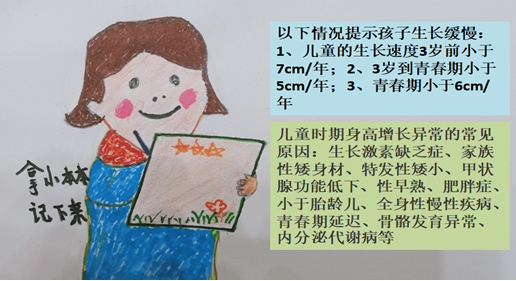 以下情况提示孩子生长缓慢：
1、儿童的生长速度3岁前小于
7cm/年；2、3岁到青春期小于
5cm/年；3、青春期小于6cm/
年
儿童时期身高增长异常的常见
原因：生长激素缺乏症、家族
性矮身材、特发性矮小、甲状
腺功能低下、性早熟、肥胖症、
小于胎龄儿、全身性慢性疾病、
青春期延迟、骨骼发育异常、
内分泌代谢病等
拿小本本
记下来